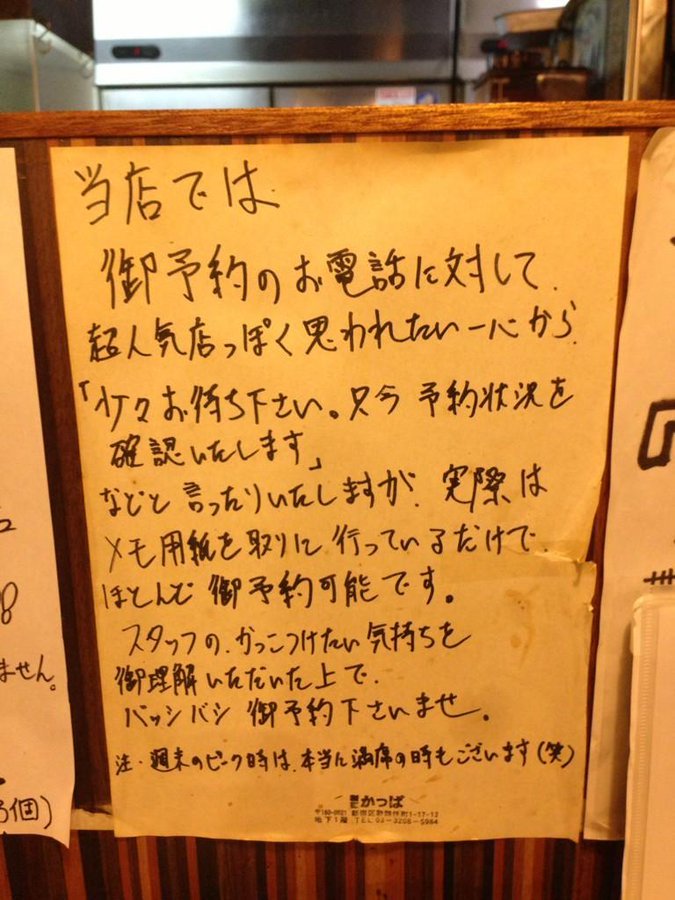 当店では
御予約のお電話に対して、
超人気店っぽく思われたい一心から
「少々お待ち下さい。只今 予約状況を
確認いたします」
などと言ったりいたしますが、実際は
メモ用紙を取りに行っているだけで、
ほとんど御予約可能です。
スタッフの、かっこつけたい気持ちを
御理解いただいた上で、
バッシバシ御予約下さいませ。
注・週末のピーク時は、本当に満席の時もございます(笑)
かっぱ
新宿区歌舞伎町1-17-12
地下1階 TEL 03-3208-5984
ません。
個)